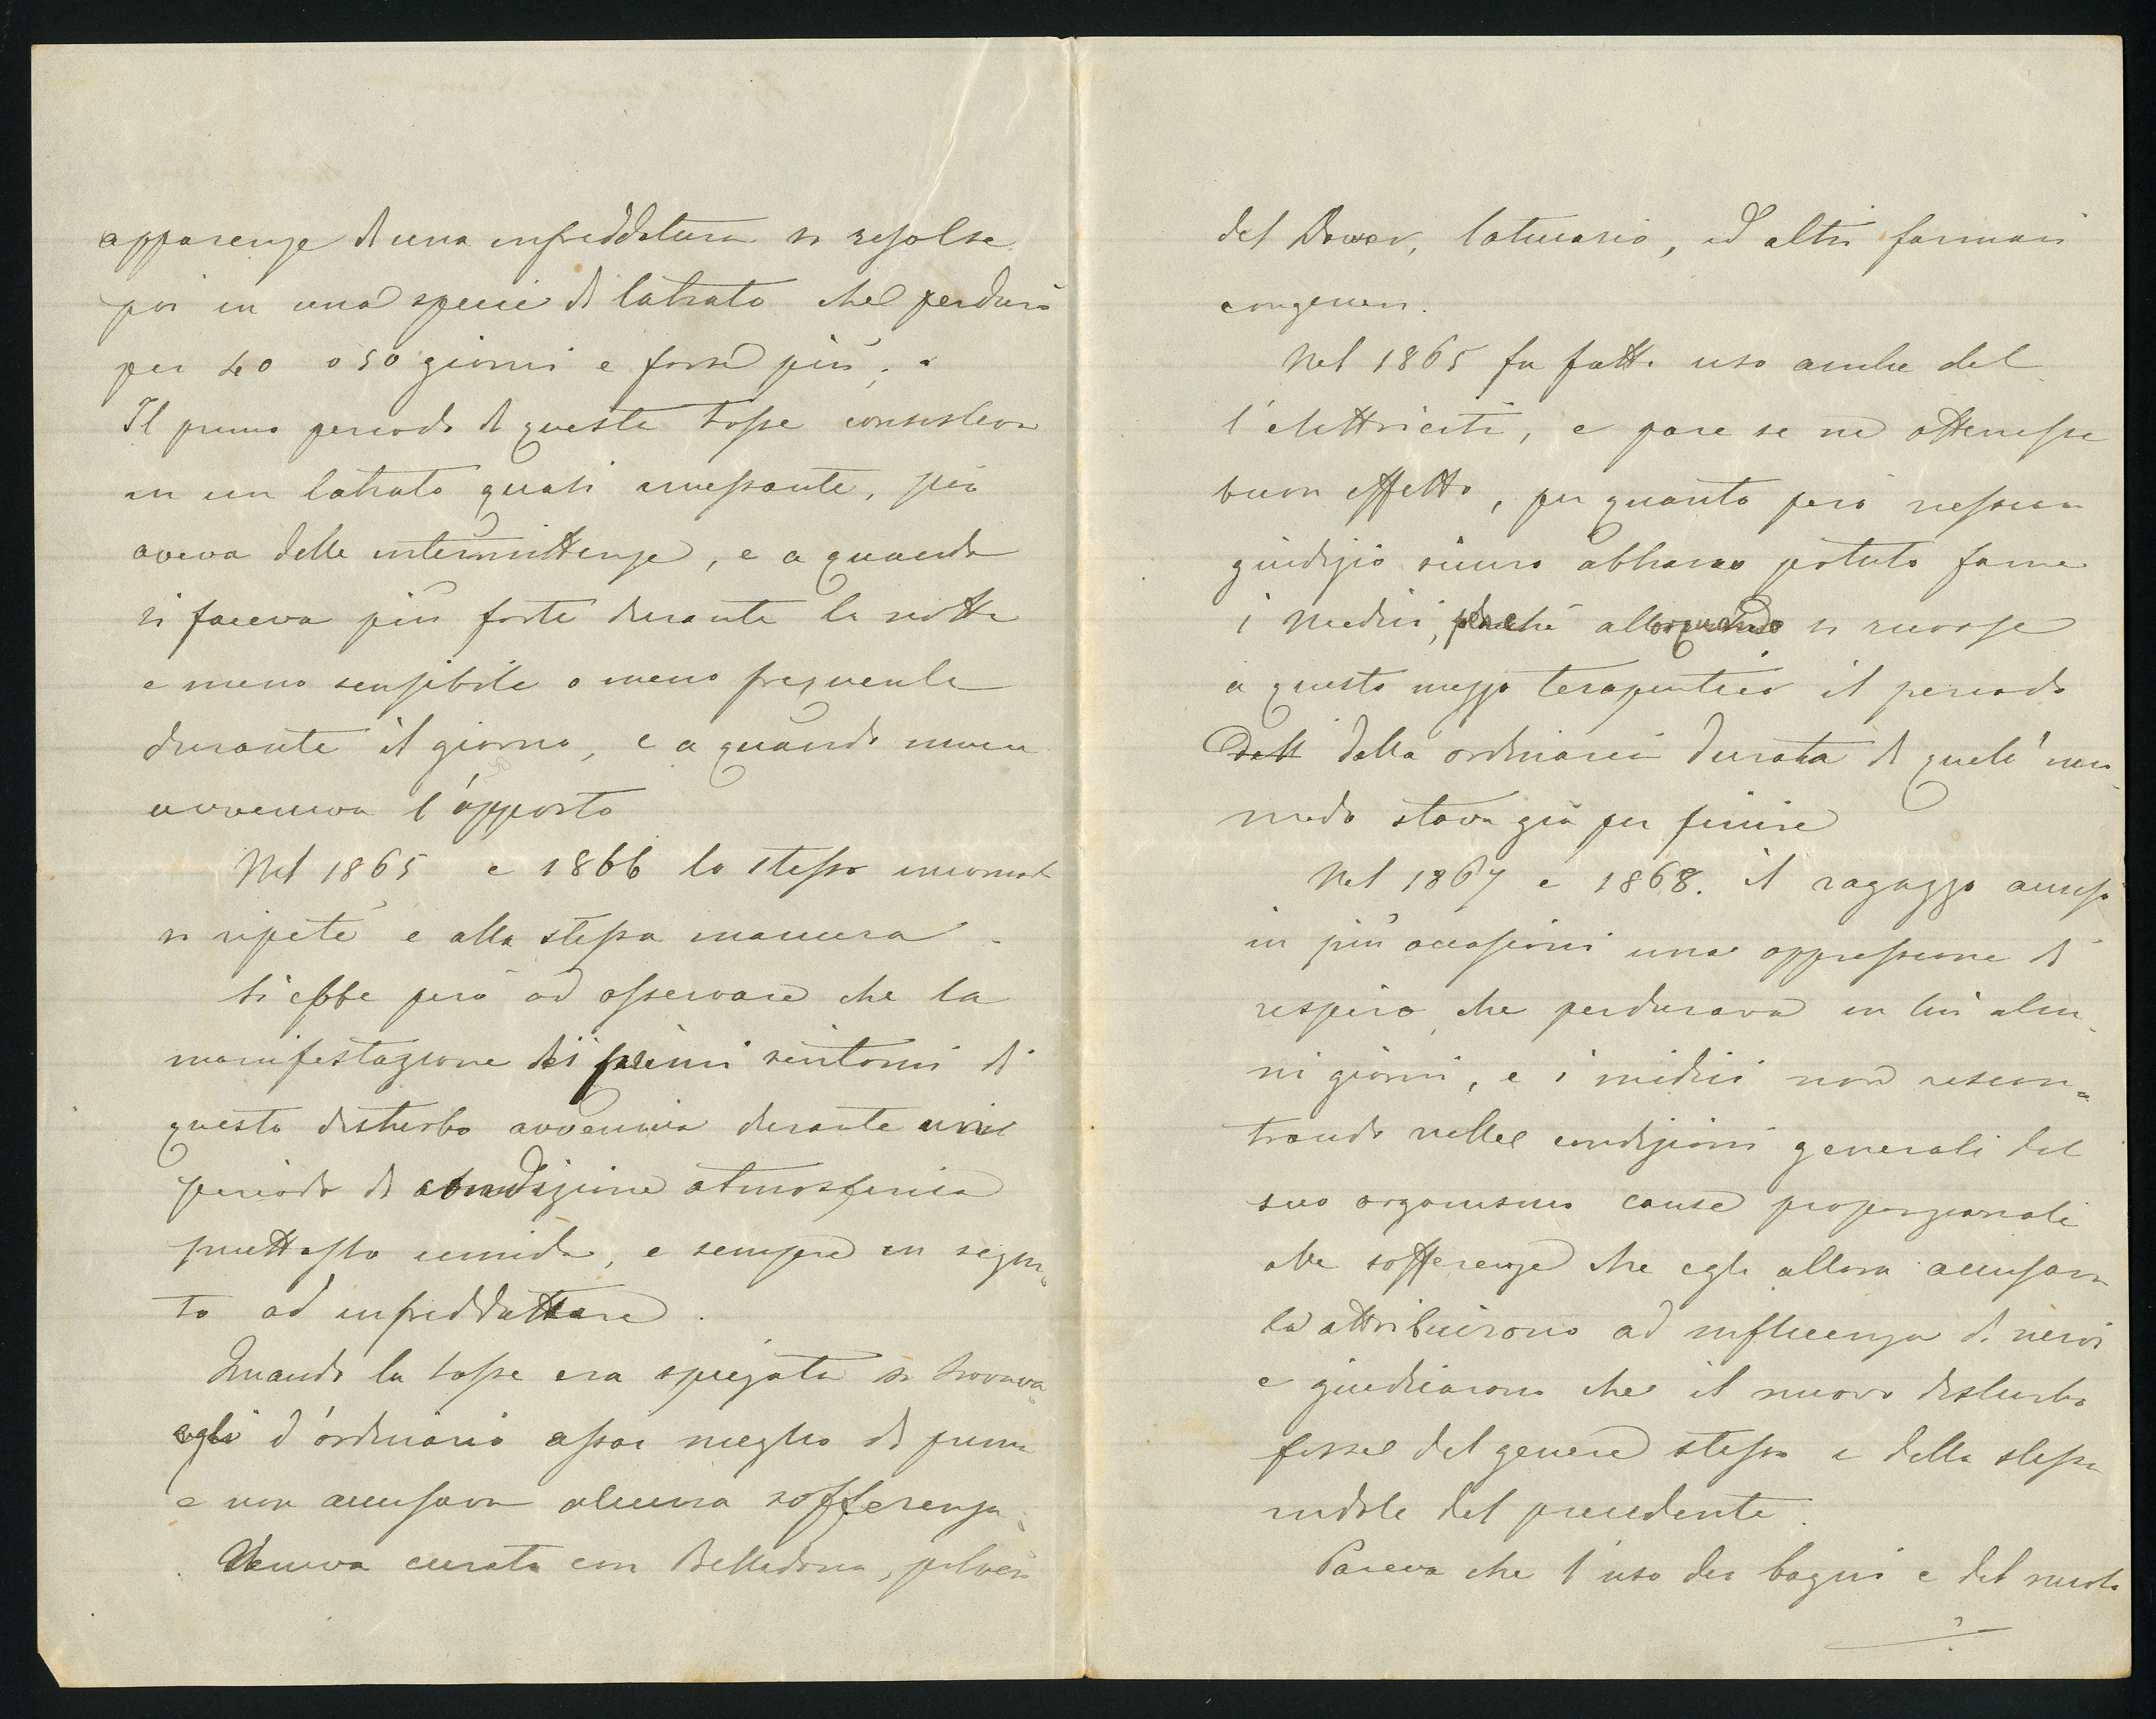 apparenze di una infreddatura si risolse
poi in una specie di latrato che perdurò
per 40 o 50 giorni e forse più.
Il primo periodo di questa tosse consisteva
in un latrato quasi incessante, più
aveva delle intermittenze, e a quando
si faceva più forte durante la notte
e meno sensibile o meno frequente
durante il giorno, e a quando invece
avveniva l'opposto
Nel 1865 e 1866 lo stesso incomodo
si ripetè e alla stessa maniera.
Si ebbe però ad osservare che la
manifestazione dei primi sintomi di
questo disturbo avveniva durante un
periodo di condizione atmosferica
piuttosto umida, e sempre in segui-
to ad infreddature.
Quando la tosse era spiegata si trovava
egli d'ordinario assai meglio di prima
e non accusava alcuna sofferenza.
Veniva curato con Belladonna, polveri
del Dower, latucario, ed altri farmaci
congeneri.
Nel 1865 fu fatto uso anche del-
l'elettricità, e pare se ne ottenesse
buon effetto, per quanto però nessun
giudizio sicuro abbiano potuto farne
i Medici, perchè allorquando si ricorse
a questo mezzo terapeutico il periodo
dell della ordinaria durata di quell'inco-
modo stava già per finire
Nel 1867 e 1868. il ragazzo accusò
in più occasioni una oppressione di
respiro che perdurava in lui alcu-
ni giorni, e i medici non riscon-
trando nelle condizioni generali del
suo organismo cause proporzionali
alle sofferenze che egli allora accusava
la attribuirono ad influenza di nervi
e giudicarono che il nuovo disturbo
fosse del genere stesso e della stessa
indole del precedente.
Pareva che l'uso dei bagni e del nuoto